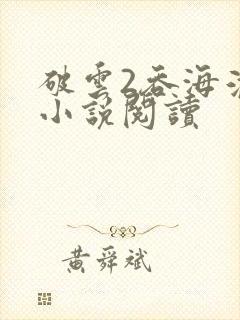 破雲2吞海
小說閱讀
黃舜斌